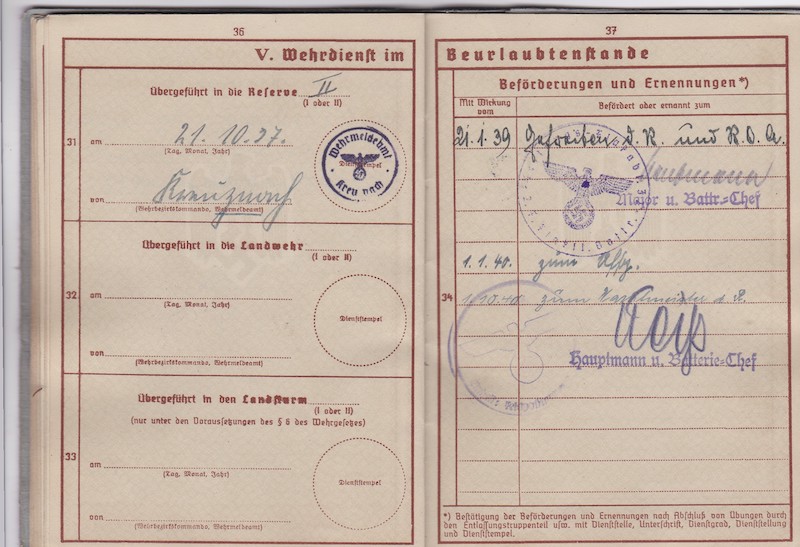 36
V. Wehrdienst im
Übergeführt in die Reserve II
(I oder II)
31
am 21.10.37.
(Tag, Monat, Jahr)
von Kreuznach
(Wehrbezirkskommando, Wehrmeldeamt)
Wehrmeldeamt
Dienststempel
Kreuznach
Übergeführt in die Landwehr
(I oder II)
32
am
(Tag, Monat, Jahr)
von
(Wehrbezirkskommando, Wehrmeldeamt)
Dienststempel
Übergeführt in den Landsturm
(I oder II)
(nur unter den Voraussetzungen des § 6 des Wehrgesetzes)
33
am
(Tag, Monat, Jahr)
von
(Wehrbezirkskommando, Wehrmeldeamt)
Dienststempel
37
Beurlaubtenstande
Beförderungen und Ernennungen*)
Mit Wirkung vom
Befördert oder ernannt zum
21.1.39 Gefreiten d.R. und R.O.A.
Major u. Battr.-Chef
1.1.40. zum Uffz.
34
1.10.40 zum Wachtmeister d.R.
Hauptmann u. Batterie-Chef
*) Bestätigung der Beförderungen und Ernennungen nach Abschluß von Übungen durch
den Entlassungstruppenteil usw. mit Dienststelle, Unterschrift, Dienstgrad, Dienststellung
und Dienststempel.